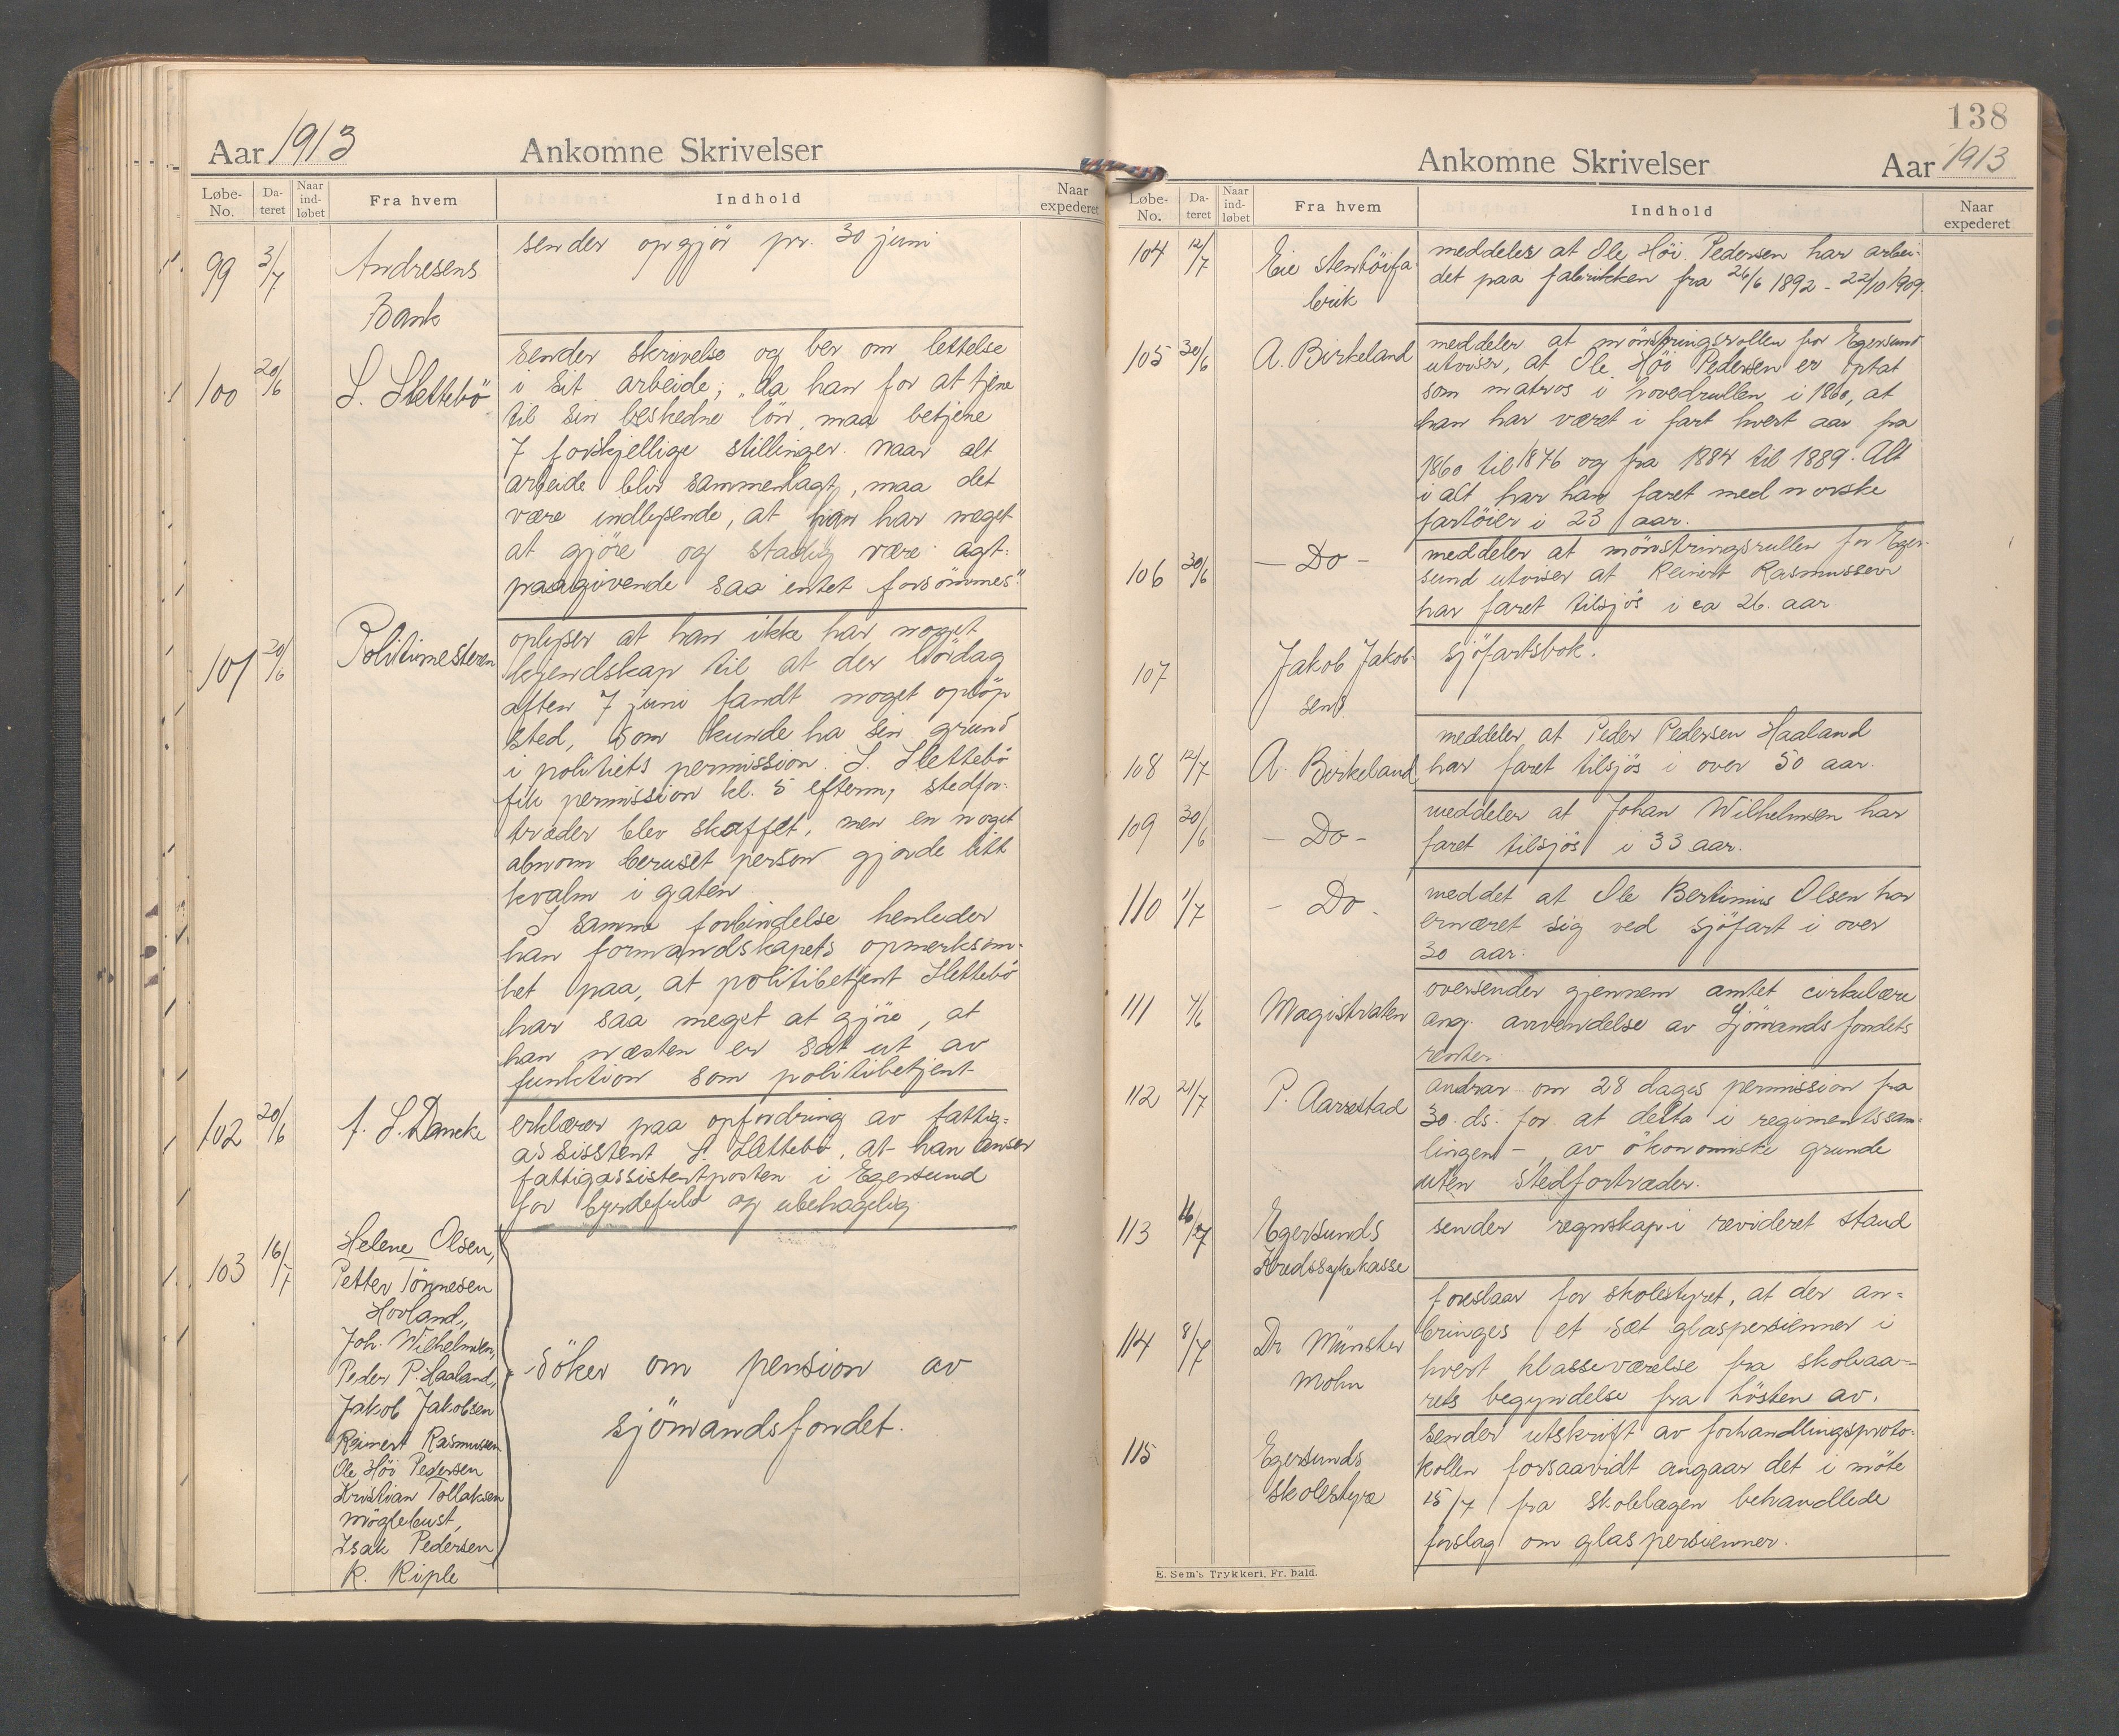 Aar 1913
Ankomne Skrivelser
Løbe-No.
Da-teret
Naar ind-løbet
Fra hvem
Indhold
Naar expederet
99 3/7 Andresens Bank
sender opgjör pr. 30 juni
100 20/6 S. Slettebö
sender skrivelse og ber om lettelse
i sit arbeide; "da han for at tjene
til sin beskedne lön, maa betjene
7 forskjellige stillinger. Naar alt
arbeide blir sammenlagt, maa det
være indlysende, at han har meget
at gjöre og stadig være agt-
paagivende saa intet forsömmes".
101 20/6 Politimesteren
oplyser at han ikke har noget
kjendskap til at der lördag
aften 7 juni fandt noget oplöp
sted, som kunde ha sin grund
i politiets permission. S. Slettebö
fik permission kl. 5 efterm, stedfor-
træder blev skaffet, men en noget
abnorm beruset person gjorde litt
kvalm i gaten
I samme forbindelse henleder
han formandskapets opmerksom-
het paa, at politibetjent Slettebö
har saa meget at gjöre, at
han næsten er sat ut av
funktion som politibetjent
102 20/6 f. S. Dancke
erklærer paa opfordring av fattig-
assisstent S. Slettebö, at han anser
fattigassistentposten i Egersund
for byrdefuld og ubehagelig
103 16/7 Helene Olsen,
Petter Tönnesen
Hovland,
Joh. Wilhelmsen,
Peder P. Haaland,
Jakob Jakobsen
Reinert Rasmussen
Ole Höi Pedersen
Kristian Tollaksen
Möglebust,
Isak Pedersen
K. Riple
Söker om pension av
sjömandsfondet.
138
Ankomne Skrivelser
Aar 1913
Løbe-No.
Da-teret
Naar ind-løbet
Fra hvem
Indhold
Naar expederet
104 12/7 Eie Stentöifa-
brik
meddeler at Ole Höi Pedersen har arbei-
det paa fabrikken fra 26/6 1892 - 22/10 1909.
105 30/6 A. Birkeland
meddeler at mönstringsrollen for Egersund
utviser, at Ole Höi Pedersen er optat
som matros i hovedrullen i 1860, at
han har været i fart hvert aar fra
1860 til 1876 og fra 1884 til 1889. Alt
i alt har han faret med norske
fartöier i 23 aar.
106 30/6 - Do -
meddeler at mönstringsrullen for Eger-
sund utviser at Reinert Rasmussen
har faret tilsjös i ca 26. aar
107 Jakob Jakob-
sens
sjöfartsbok.
108 12/7 A. Birkeland
meddeler at Peder Pedersen Haaland
har faret tilsjös i over 50 aar.
109 30/6 - Do -
meddeler at Johan Wilhelmsen har
faret tilsjös i 33 aar.
110 1/7 - Do -
meddet at Ole Bertinius Olsen har
ernæret sig ved sjöfart i over
30 aar.
111 7/6 Magistraten
oversender gjennem amtet cirkulære
ang. anvendelse av Sjömandsfondets
renter.
112 21/7 P. Aarrestad
andrar om 28 dages permission fra
30 ds. for at delta i regimentssam-
lingen - av ökonomiske grunde
uten stedfortræder.
113 16/7 Egersunds
Kredssykekasse
sender regnskap i revideret stand
114 8/7 Dr Münster
Mohn
foreslaar for skolestyret, at der an-
bringes et sæt glaspersienner i
hvert klasseværelse fra skoleaa-
rets begyndelse fra hösten av.
115 Egersunds
skolestyre
sender utskrift av forhandlingsproto-
kollen forsaavidt angaar det i möte
15/7 fra skolelægen behandlede
forslag om glaspersienner.
E. Sem's Trykkeri, Fr. hald.